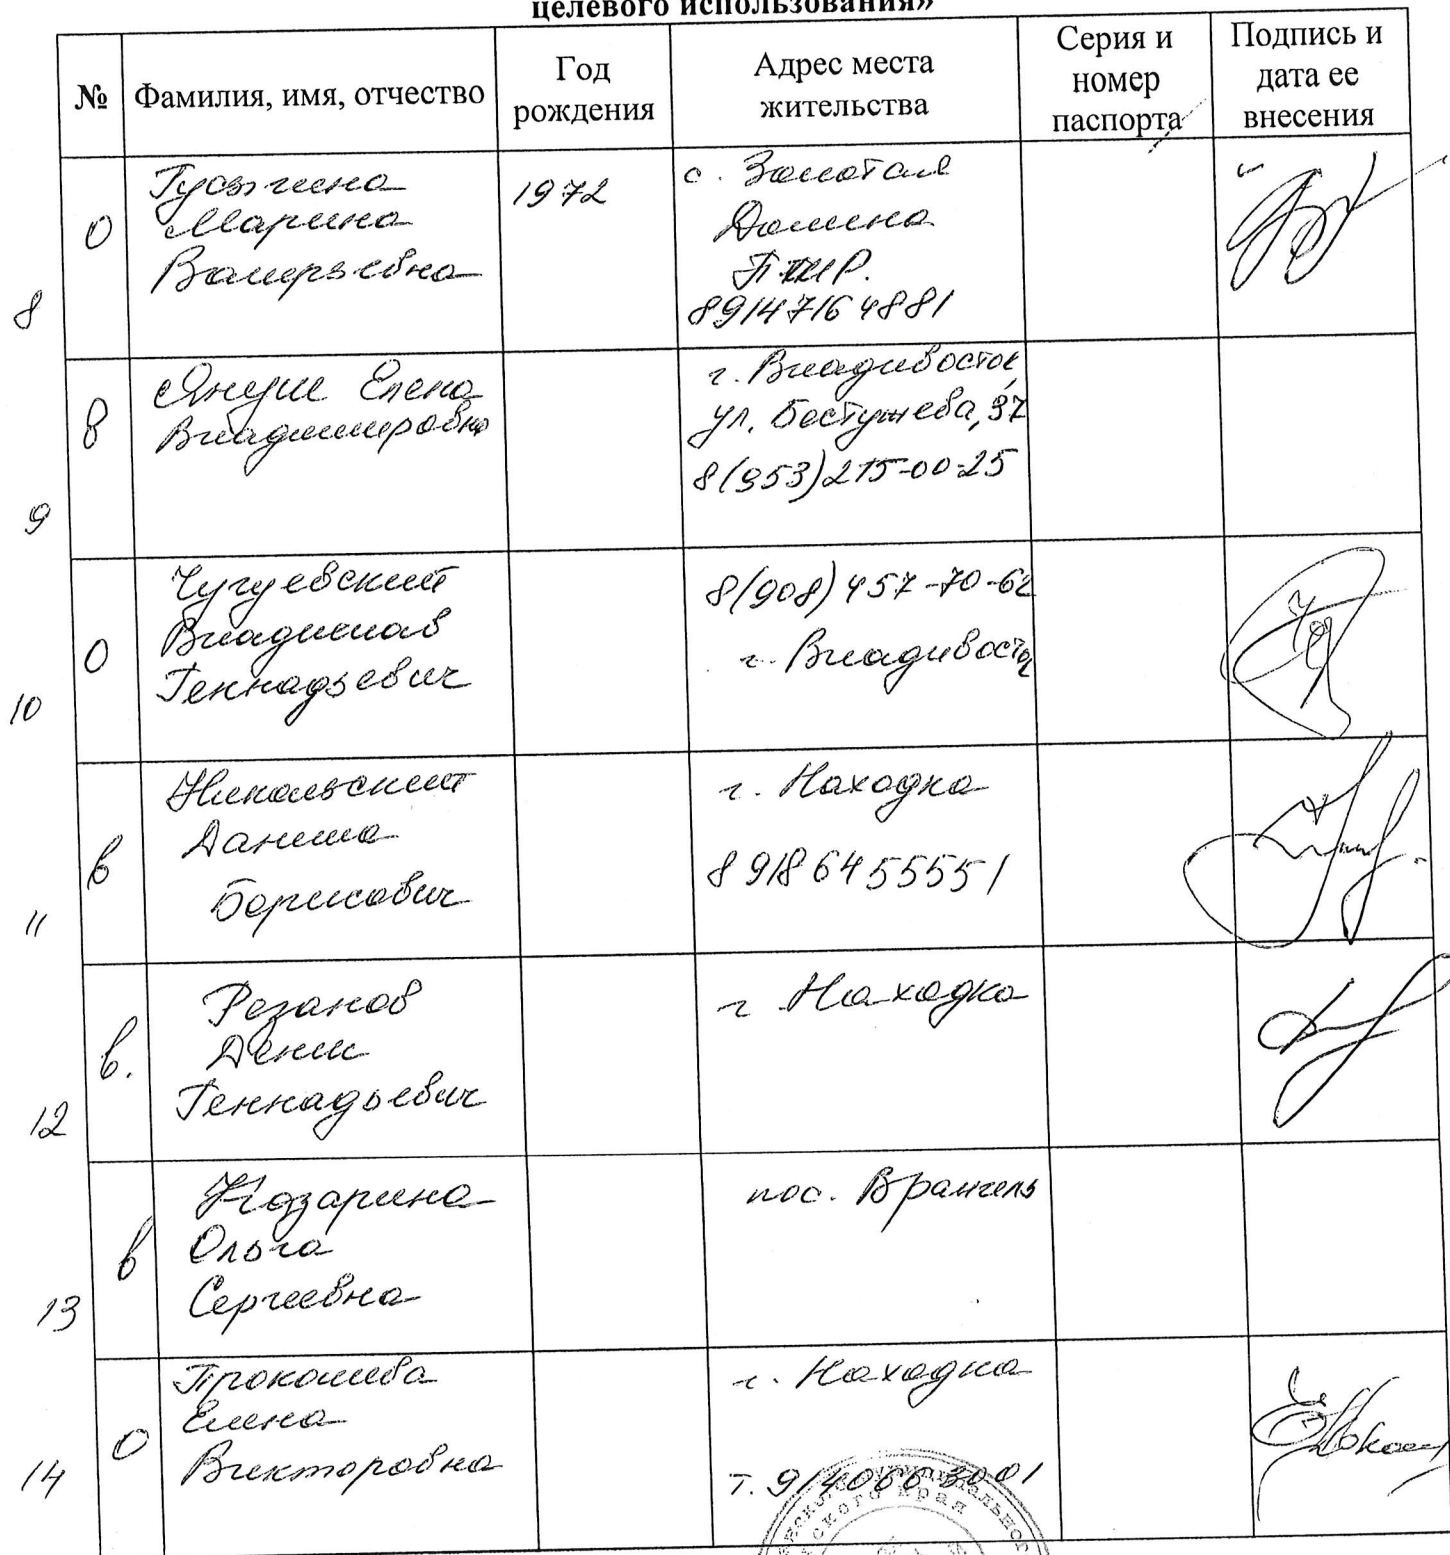 целевого использования»
№
Фамилия, имя, отчество
Год
рождения
Адрес места
жительства
Серия и
номер
паспорта
Подпись и
дата ее
внесения
8
О
Марина
Валерьевна
1972
с. Золотая
Долина
89147164881
9
в
Януш Елена
Владимировна
г. Владивосток,
ул. Бестужева, 37
8(953)215-00-25
10
О
Чугуевский
Владислав
Геннадьевич
8(908)457-70-62
г. Владивосток
11
в
Никольский
Данила
Борисович
г. Находка
89186455551
12
в.
Резанов
Денис
Геннадьевич
г Находка
13
в
Назарина
Ольга
Сергеевна
пос. Врангель
14
О
Елена
Викторовна
г. Находка